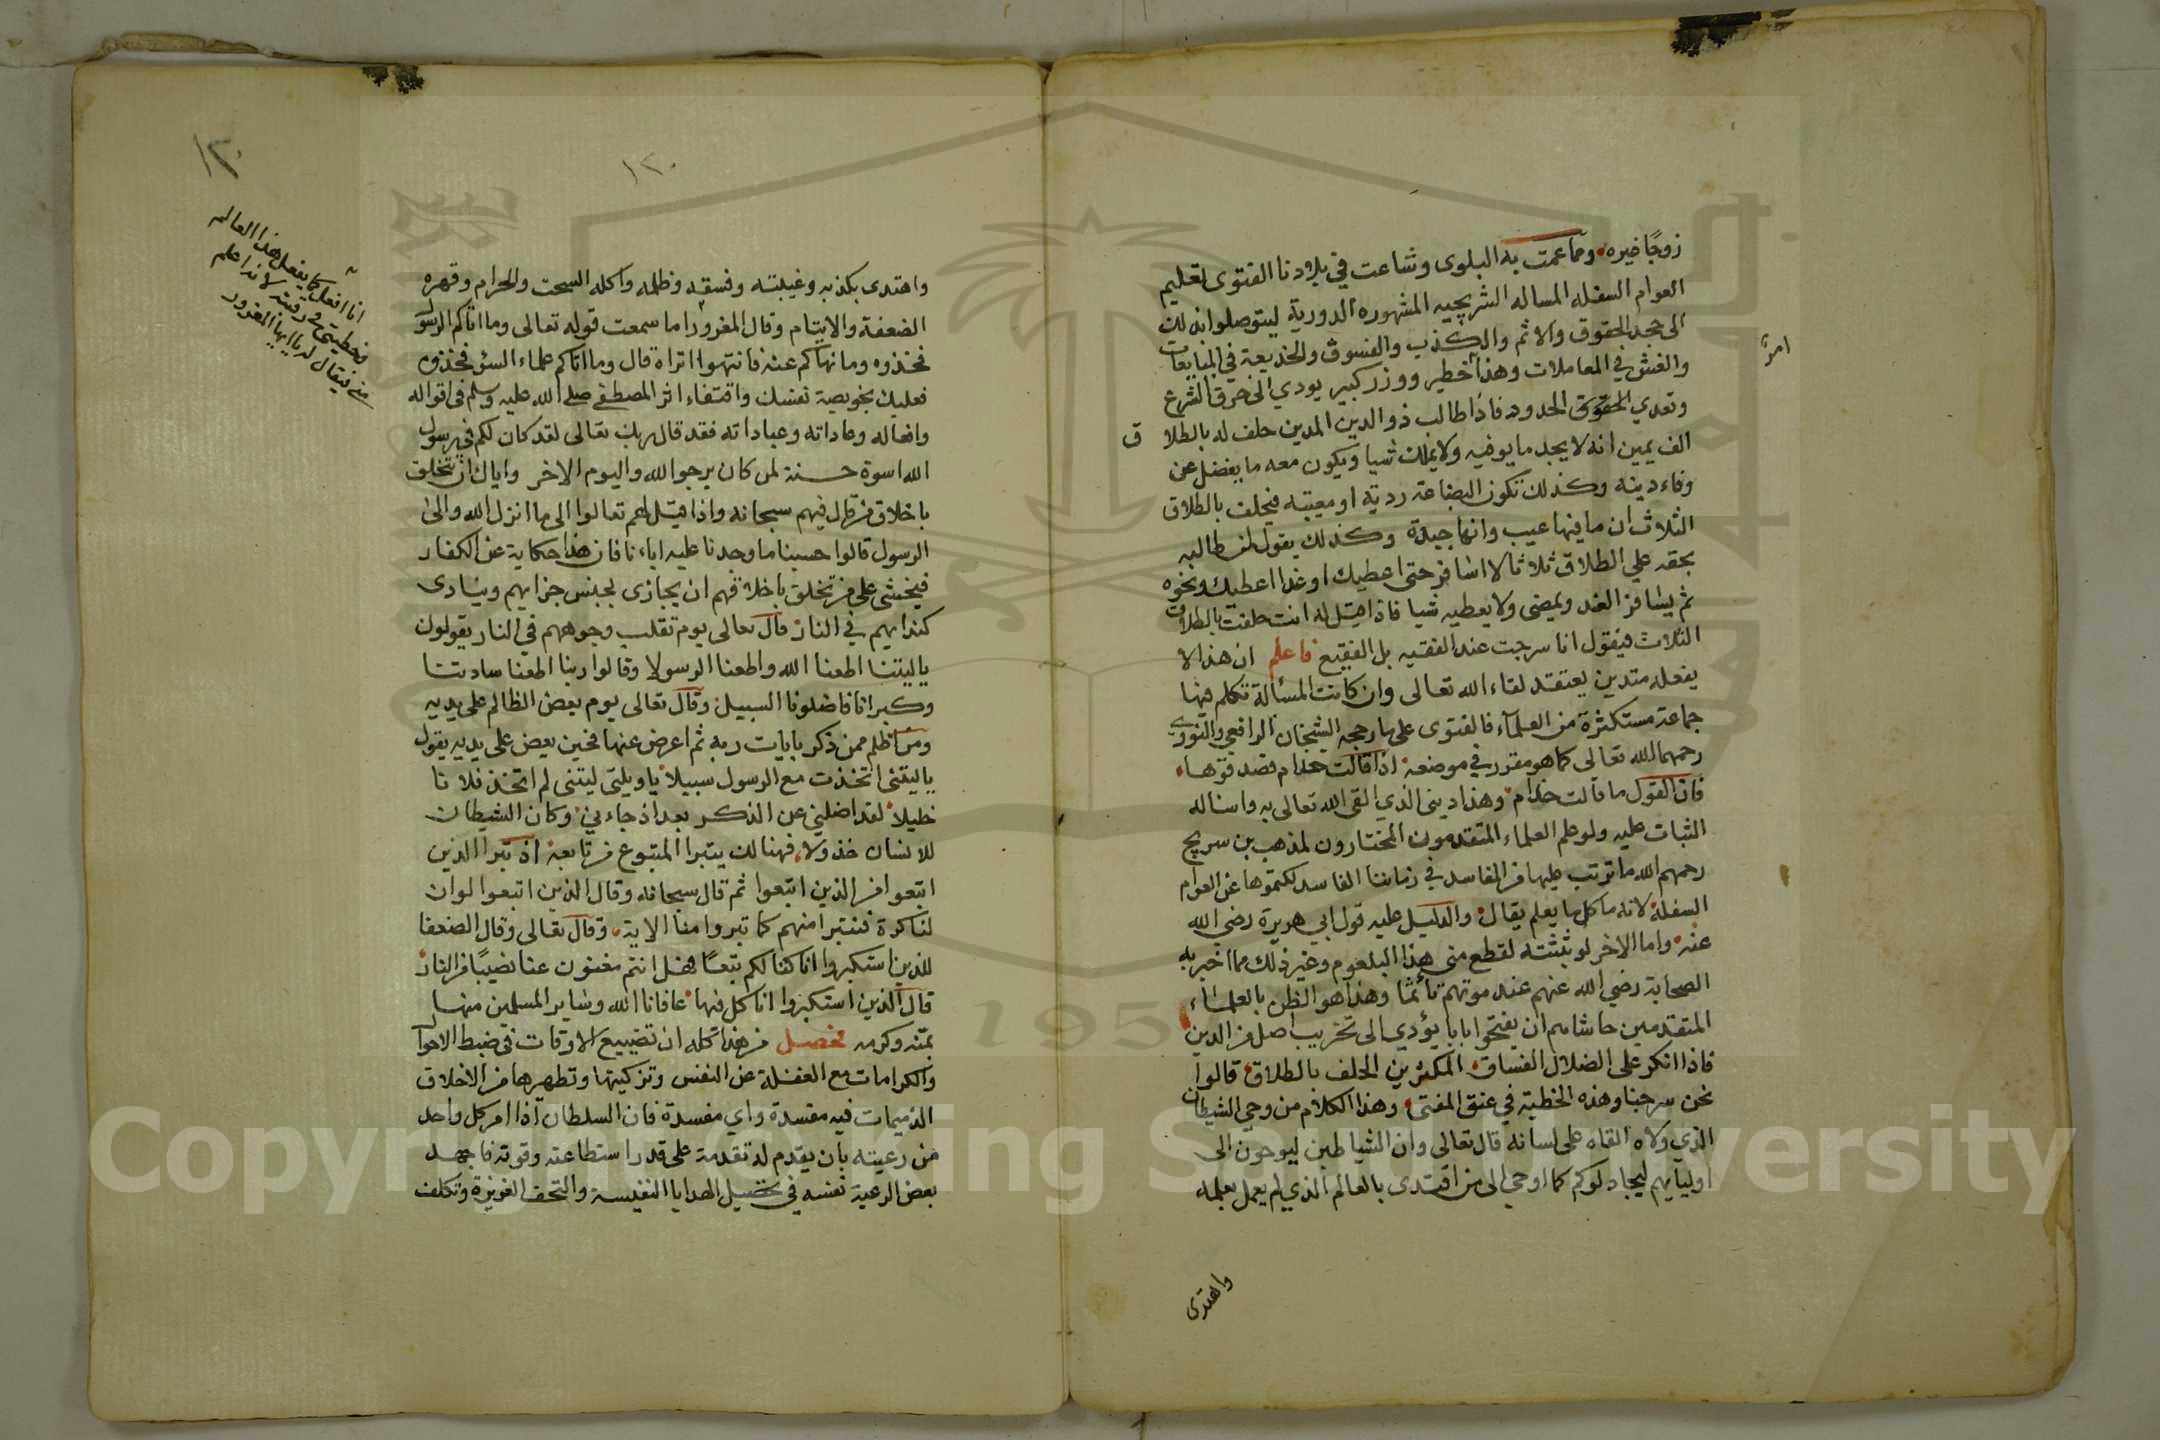 زوجًا غيره ومما عمت به البلوى وشاعت في بلادنا الفتوى لتعليم
العوام السفله المساله الشريجيه المشهوره الدورية ليتوصلوا بذلك
الى جحد الحقوق والاثم والكذب والفسوق والخديعة في المبايعات
والغش في المعاملات وهذا أمر خطير ووزر كبير يودي الى خرق الشرع
وتعدي الحقوق المحدوده فاذا طالب ذو الدين المدين حلف له بالطلاق
الف يمين انه لا يجد ما يوفيه ولا يملك شيا ويكون معه ما يفضل عن
وفاء دينه وكذلك تكون البضاعة ردية او معيبه فيحلف بالطلاق
الثلاث ان ما فيها عيب وانها جيدة وكذلك يقول لمن طالبه
بحقه علي الطلاق ثلاثا لا اسافر حتى اعطيك او غدا اعطيك ونحوه
ثم يسافر الغد ويمضى ولا يعطيه شيا فاذا قيل له انت حلفت بالطلاق
الثلاث فيقول انا سرجت عند الفقيه بل الفقيع فاعلم ان هذا لا
يفعله متدين يعتقد لقاء الله تعالى وان كانت المسألة تكلم فيها
جماعة مستكثرة من العلماء فالفتوى على ما رجحه الشيخان الرافعي والنووي
رحمهما الله تعالى كما هو مقرر في موضعه اذا قالت حذام فصدقوها
فان القول ما قالت حذام وهذا ديني الذي القى الله تعالى به واساله
الثبات عليه ولو علم العلماء المتقدمون المختارون لمذهب بن سريج
رحمهم الله ما ترتب عليها من المفاسد في زماننا الفاسد لكتموها عن العوام
السفله لانه ما كل ما يعلم يقال والدليل عليه قول ابي هريرة رضي الله
عنه واما الاخر لو بثثته لقطع مني هذا البلعوم وغير ذلك مما اخبر به
الصحابة رضي الله عنهم عند موتهم تأثما وهذا هو الظن بالعلماء
المتقدمين حاشاهم ان يفتحوا بابا يؤدي الى تخريب اصل من الدين
فاذا انكر على الضلال الفساق المكثرين الحلف بالطلاق قالوا
نحن سرجنا وهذه الخطية في عنق المفتي وهذا الكلام من وحي الشيطان
الذي ولاه القاه على لسانه قال تعالى وان الشياطين ليوحون الى
اوليآيهم ليجادلوكم كما اوحي الى من اقتدى بالعالم الذي لم يعمل بعلمه
واهتدى
١٢٠
١٢٠
انا افعل كما يفعل هذا العالم
وخطيتي في رقبته لانه اعلم
مني فيقال له يا ايها المغرور
واهتدى بكذبه وغيبته وفسقه وظلمه واكله السحت والحرام وقهره
الضعفة والايتام وقال المغرور اما سمعت قوله تعالى وما اتاكم الرسول
فخذوه وما نهاكم عنه فانتهوا اتراه قال وما اتاكم علماء السؤ فخذوه
فعليك بخويصة نفسك واقتفاء اثر المصطفى صلى الله عليه وسلم في اقواله
وافعاله وعاداته وعباداته فقد قال ربك تعالى لقد كان لكم في رسول
الله اسوة حسنة لمن كان يرجو الله واليوم الاخر واياك ان تتخلق
باخلاق من قال فيهم سبحانه واذا قيل لهم تعالوا الى ما انزل الله والى
الرسول قالوا حسبنا ما وجدنا عليه اباءنا فان هذا حكاية عن الكفار
فيخشى على من تخلق باخلاقهم ان يجازى بجنس جزايهم وينادى
كندايهم في النار قال تعالى يوم تقلب وجوههم في النار يقولون
ياليتنا اطعنا الله واطعنا الرسولا وقالوا ربنا اطعنا سادتنا
وكبرانا فاضلونا السبيل وقال تعالى يوم يعض الظالم على يديه
ومن اظلم ممن ذكر بايات ربه ثم اعرض عنها فحين يعض على يديه يقول
ياليتني اتخذت مع الرسول سبيلا يا ويلتى ليتني لم اتخذ فلانا
خليلا لقد اضلني عن الذكر بعد اذ جاءني وكان الشيطان
للانسان خذولا فهنالك يتبرا المتبوع من تابعه اذ تبرا الذين
اتبعوا من الذين اتبعوا ثم قال سبحانه وقال الذين اتبعوا لو ان
لنا كرة فنتبرا منهم كما تبروا منا الاية وقال تعالى وقال الضعفا
للذين استكبروا انا كنا لكم تبعًا فهل انتم مغنون عنا نصيبًا من النار
قال الذين استكبروا انا كل فيها عافانا الله وساير المسلمين منها
بمنه وكرمه فحصل من هذا كله ان تضييع الاوقات في ضبط الاحوال
والكرامات مع الغفلة عن النفس وتزكيتها وتطهرها من الاخلاق
الذميمات فيه مفسدة واي مفسدة فان السلطان اذا امر كل واحد
من رعيته بأن يقدم له تقدمة على قدر استطاعته وقوته فاجهد
بعض الرعية نفسه في تحصيل الهدايا النفيسة والتحف الغزيزة وتكلف
Copyright © King Saud University
195